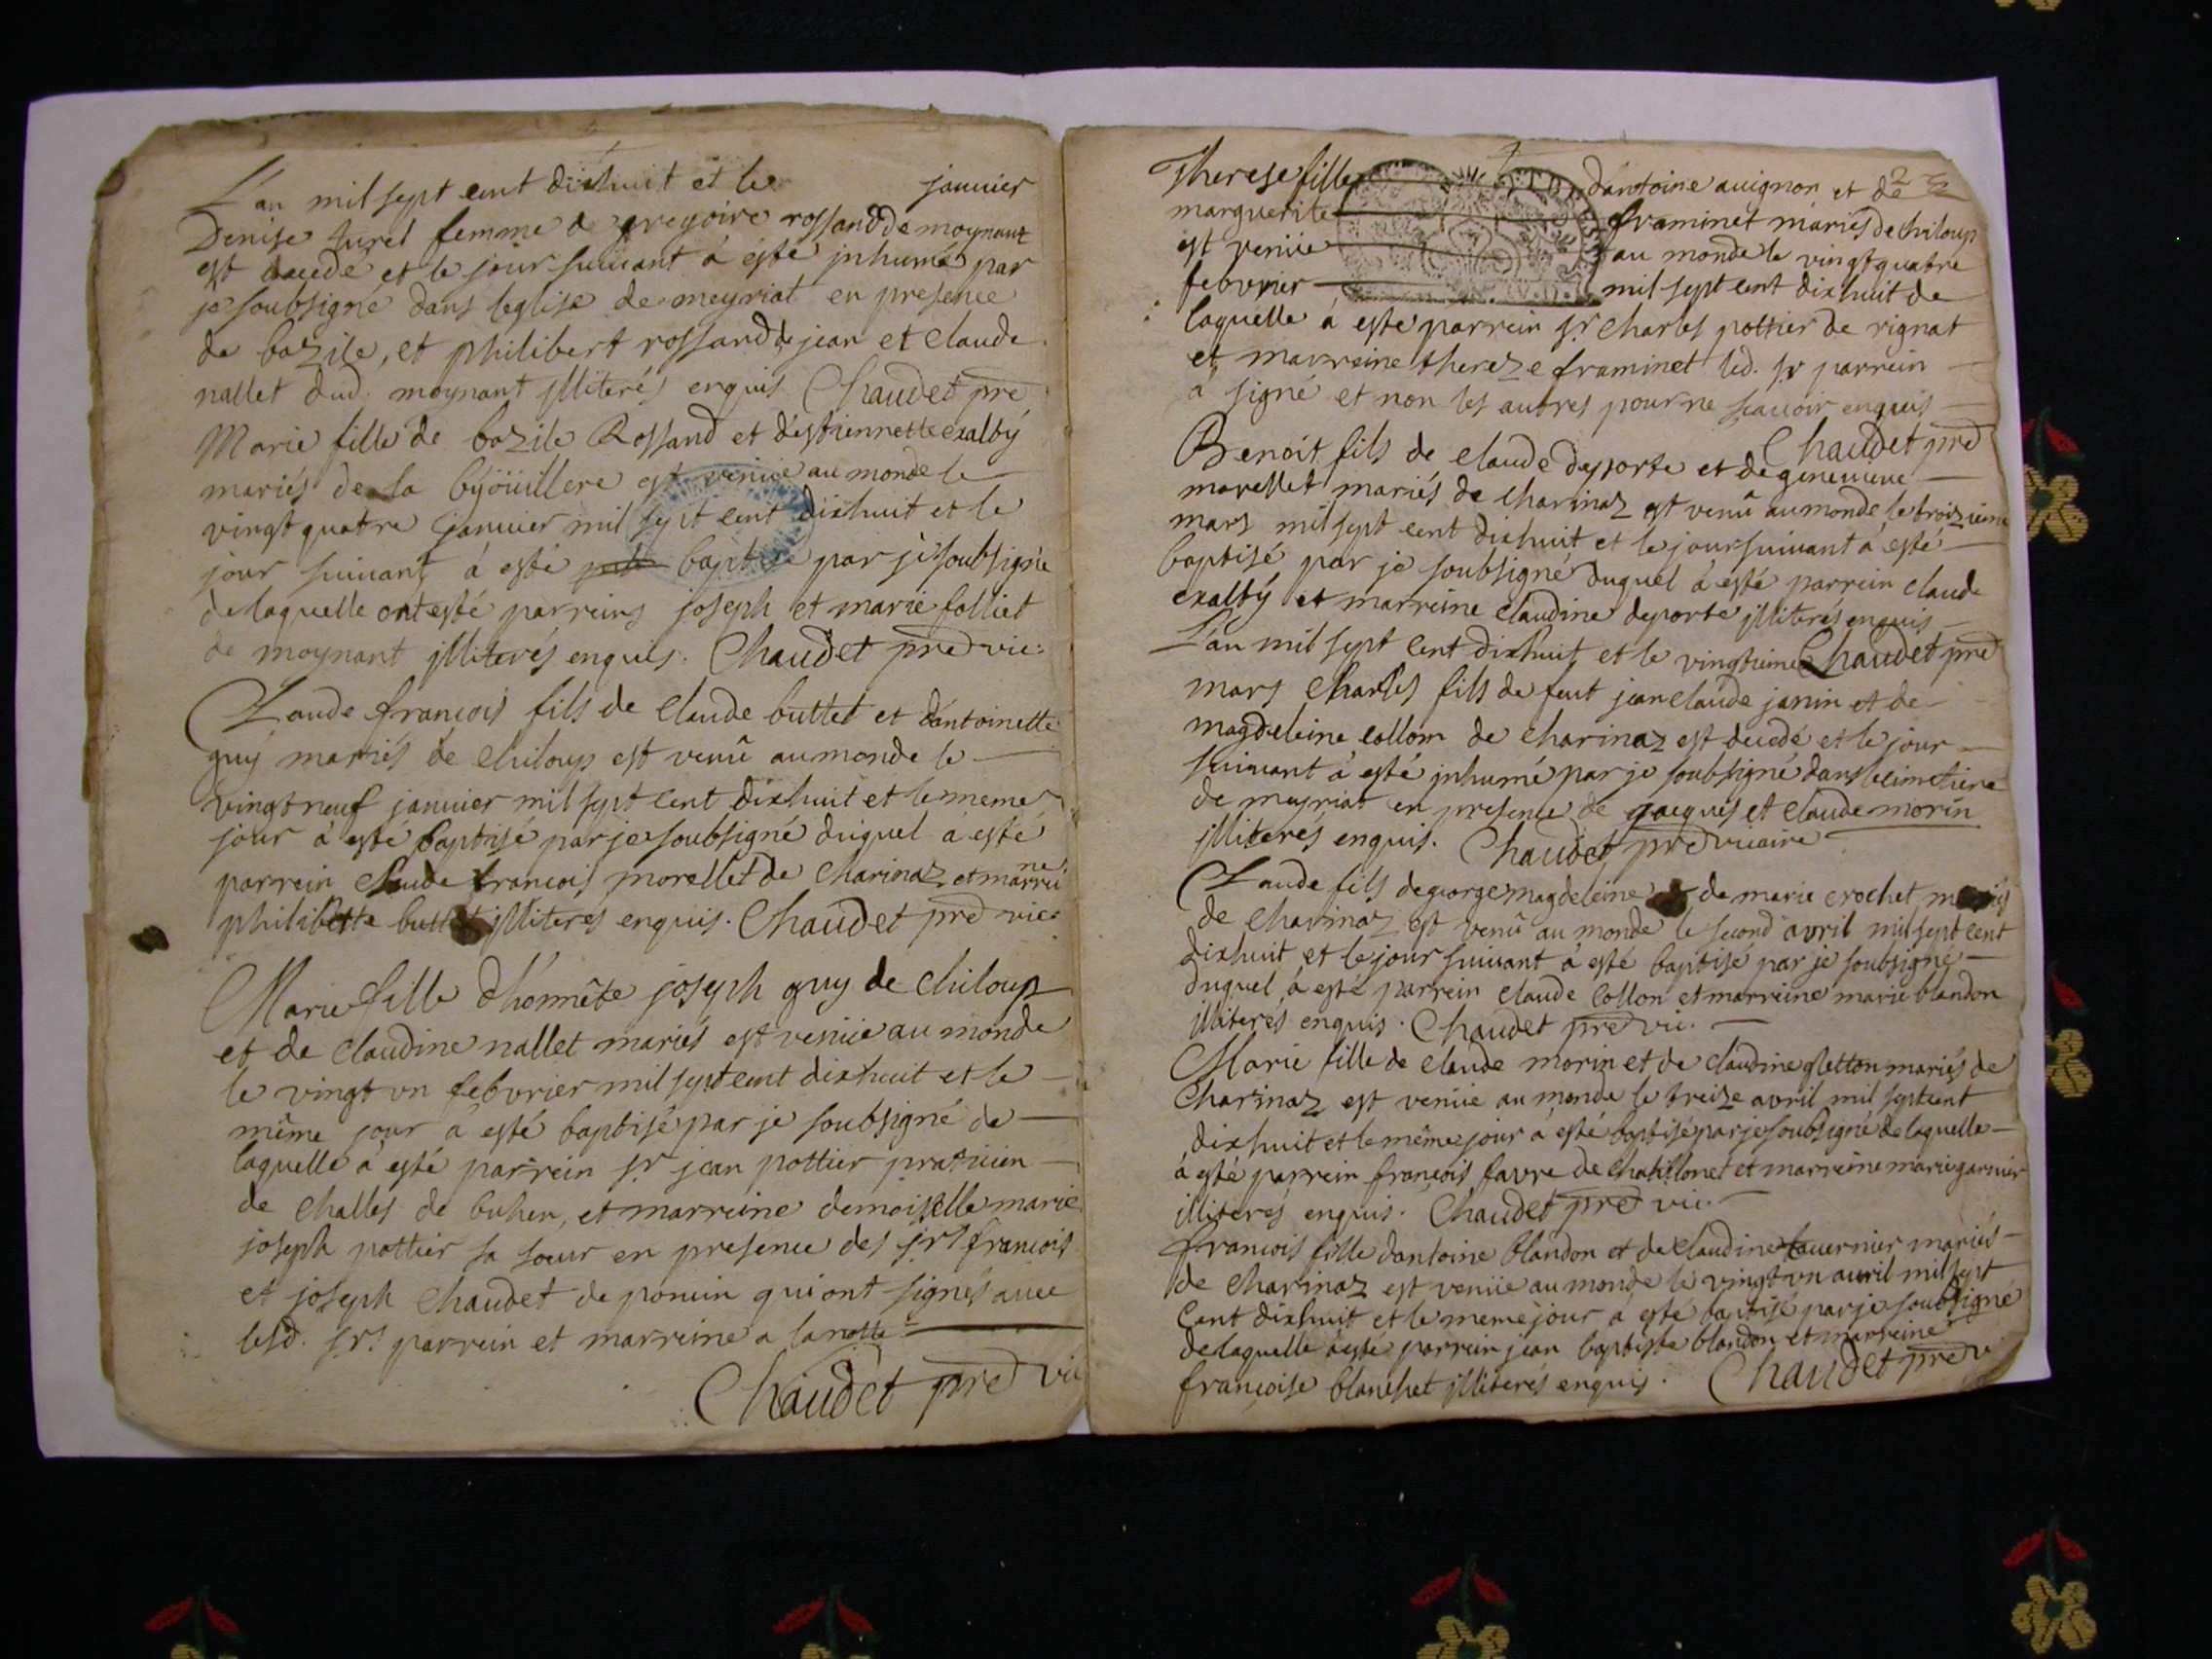 L'an mil sept cent dixhuit et le janvier
Denise turel femme de gregoire rossand de moynant
est decedé et le jour suivant à ésté jnhumé par
je soubsigné dans leglise de meyriat en presence
de bazile, et philibert rossand de jean et claude
nallet dud. moynant jlliterés enquis Chaudet pre
Marie fille de bazile Rossand et d'estiennette exalby
mariés de la byöüillere est venüe au monde le
vingt quatre janvier mil sept cent dixhuit et le
jour suivant à esté baptisé par je soubsigné
de laquelle ont esté parreins joseph et marie folliet
de moynant jlliterés enquis. Chaudet pre vic:
Claude françois fils de claude buttet et d'antoinette
guy mariés de chiloup est venû au monde le
vingt neuf janvier mil sept cent dixhuit et le meme
jour à esté baptisé par je soubsigné duquel à esté
parrein claude francois morellet de charinaz et marreine
philiberte buttet jlliterés enquis. Chaudet pre vic:
Marie fille d'honnête joseph guy de chiloup
et de claudine nallet mariés est venüe au monde
le vingt vn febvrier mil sept cent dixhuit et le
même jour à esté baptisé par je soubsigné de
laquelle à esté parrein sr. jean pottier praticien
de challes de buhen, et marreine demoiselle marie
joseph pottier sa soeur en presence des srs francois
et joseph chaudet de poncin qui ont signés avec
lesd. srs. parrein et marreine a la notte
Chaudet pre vic
Therese fille d'antoine avignon et de 2
marguerite framinet mariés de chiloup
est venüe au monde le vingt quatre
febvrier mil sept cent dixhuit de
laquelle à esté parrein sr. charles pottier de rignat
et marreine thereze framinet led. sr parrein
à signé et non les autres pour ne scavoir enquis
Chaudet pre
Benoit fils de claude deporte et de genevieve
morellet mariés de charinaz est venû au monde le troizieme
mars mil sept cent dixhuit et le jour suivant à esté
baptisé par je soubsigné duquel à esté parrein claude
exalby et marreine claudine deporte jlliterés enquis
L'an mil sept cent dixhuit et le vingtieme Chaudet pre
mars charles fils de feut jean claude janin et de
magdeleine collom de charinaz est decedé et le jour
suivant à esté jnhumé par je soubsigné dans le cimetiere
de meyriat en presence de jacques et claude morin
jlliterés enquis. Chaudet pre vicaire
Claude fils de george magdeleine de marie crochet mariés
de charinaz est venû au monde le second avril mil sept cent
dixhuit et le jour suivant à esté baptisé par je soubsigné
duquel à esté parrein claude Collon et marreine marie blandon
jlliterés enquis. Chaudet pre vic.
Marie fille de claude morin et de claudine gletton mariés de
Charinaz est venüe au monde le treize avril mil sept cent
dixhuit et le même jour à esté baptisé par je soubsigné de laquelle
à esté parrein francois favre de chatillonet et marreine marie garnier
jlliterés enquis. Chaudet pre vic.
francois fille dantoine blandon et de claudine tavernier mariés
de charinaz est venüe au monde le vingt vn avril mil sept
cent dixhuit et le meme jour à esté baptisé par je soubsigné
de laquelle à esté parrein jean baptiste blandon et marreine
françoise blanchet jlliterés enquis. Chaudet pre v